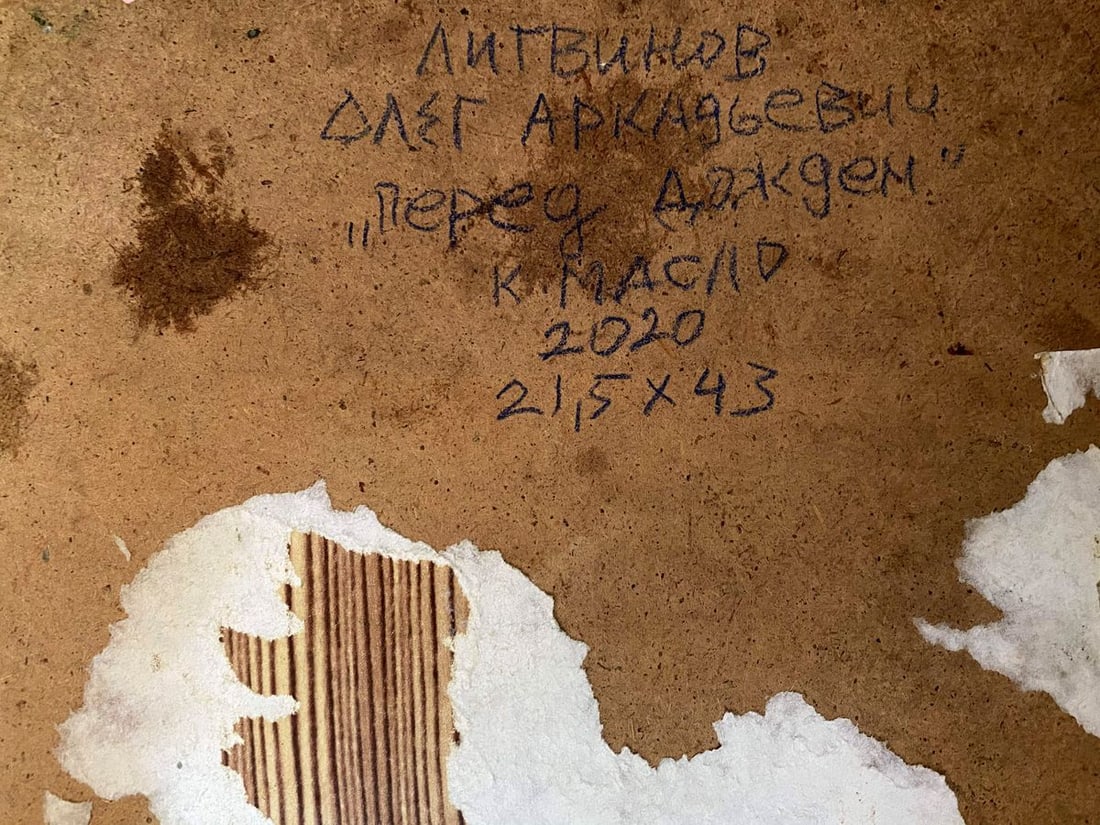 ЛИТВИНОВ
ОЛЕГ АРКАДЬЕВИЧ
„Перед Дождем"
К. МАСЛО
2020
21,5 х 43